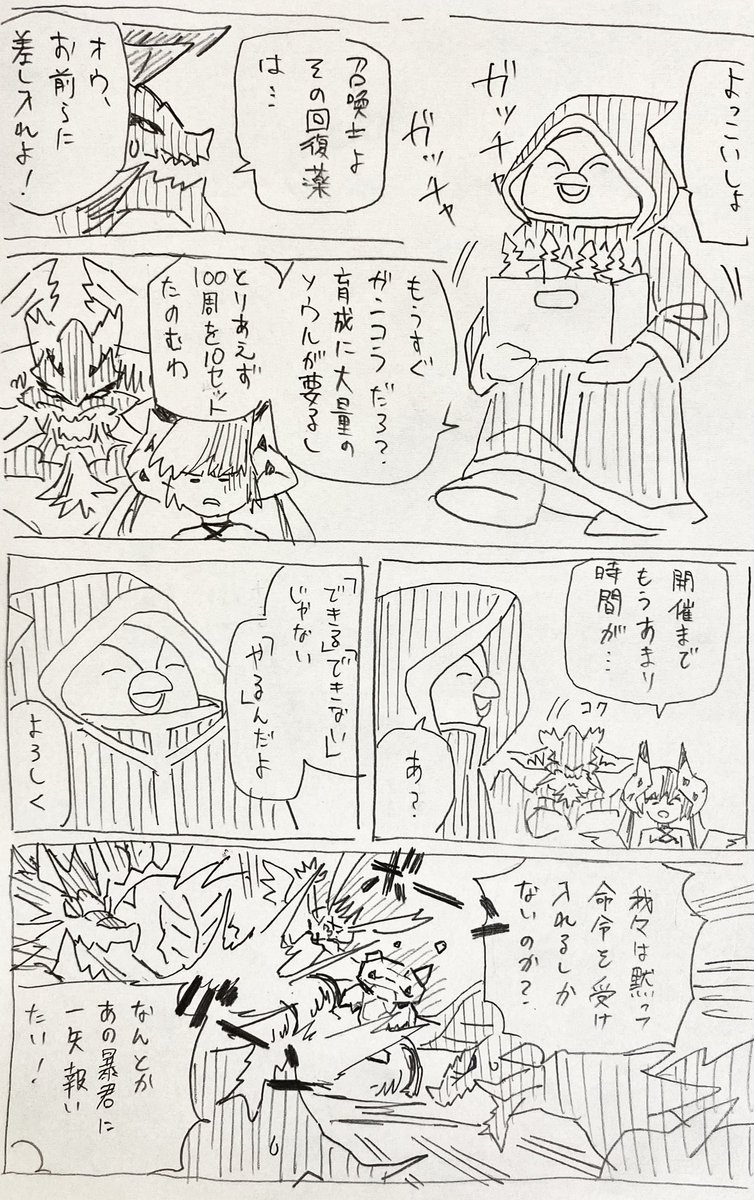 よっこいしょ
ガッチャ
ガッチャ
召喚士よ
その回復薬
は…
オウ、
お前らに
差し入れよ！
もうすぐ
ガンコラだろ？
育成に大量の
ソウルが要るし
とりあえず
100周を10セット
たのむわ
開催まで
もうあまり
時間が…
コク
あ？
「できる」「できない」
じゃない
「やる」んだよ
よろしく
我々は黙って
命令を受け
入れるしか
ないのか？
なんとか
あの暴君に
一矢報い
たい！